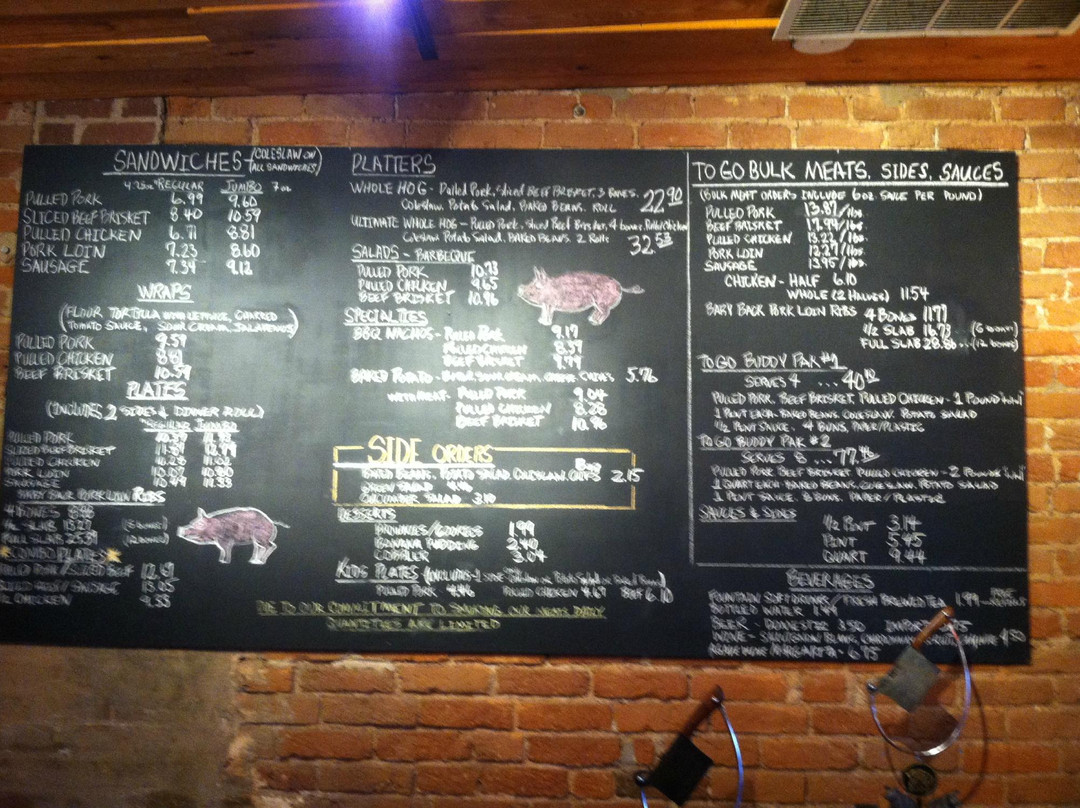 SANDWICHES (COLESLAW ON ALL SANDWICHES)
4.75oz REGULAR JUMBO 7oz
PULLED PORK 6.99 9.60
SLICED BEEF BRISKET 8.40 10.59
PULLED CHICKEN 6.71 8.81
PORK LOIN 7.23 8.60
SAUSAGE 7.34 9.12
WRAPS
(FLOUR TORTILLA WITH LETTUCE, CHARRED
TOMATO SAUCE, SOUR CREAM, JALAPENOS)
PULLED PORK 9.59
PULLED CHICKEN 8.81
BEEF BRISKET 10.59
PLATES
(INCLUDES 2 SIDES & DINNER ROLL)
REGULAR JUMBO
PULLED PORK
SLICED BEEF BRISKET 11.89
PULLED CHICKEN 10.28 11.02
PORK LOIN 10.80
SAUSAGE 11.33
BABY BACK PORK LOIN RIBS
4 BONES 8.96
1/2 SLAB 13.27 (6 bones)
FULL SLAB 25.31 (12 bones)
COMBO PLATES
PULLED PORK/SLICED BEEF 12.61
SLICED BEEF/SAUSAGE 13.05
1/2 CHICKEN 9.33
PLATTERS
WHOLE HOG - Pulled Pork, Sliced BEEF BRISKET, 3 BONES, 22.90
Coleslaw, Potato Salad, BAKED BEANS, ROLL
ULTIMATE WHOLE HOG - PULLED PORK, Sliced Beef Brisket, 4 bones, Pulled Chicken
Coleslaw Potato Salad, BAKED BEANS, 2 Rolls 32.53
SALADS - BARBECUE
PULLED PORK 10.73
PULLED CHICKEN 9.65
BEEF BRISKET 10.96
SPECIALTIES
BBQ NACHOS - PULLED PORK 9.17
PULLED CHICKEN 8.39
BEEF BRISKET 9.99
BAKED POTATO - BUTTER, SOUR CREAM, CHEESE, CHIVES 5.76
WITH MEAT - PULLED PORK 9.04
PULLED CHICKEN 8.28
BEEF BRISKET 10.96
SIDE ORDERS
BAKED BEANS, POTATO SALAD, COLESLAW, CHIPS 2.15
GREEN SALAD
CUCUMBER SALAD 3.10
DESSERTS
BROWNIES/COOKIES 1.99
BANANA PUDDING 2.40
COBBLER 3.04
KIDS PLATES (INCLUDES 1 SIDE
PULLED PORK 4.46 PULLED CHICKEN 4.67 BEEF 6.10
DUE TO OUR COMMITMENT TO SMOKING OUR MEATS DAILY
QUANTITIES ARE LIMITED
TO GO BULK MEATS, SIDES, SAUCES
(BULK MEAT ORDERS INCLUDE 6 oz SAUCE PER POUND)
PULLED PORK 13.87/lbs.
BEEF BRISKET 17.94/lbs.
PULLED CHICKEN 13.27/lbs.
PORK LOIN 12.27/lbs.
SAUSAGE 13.95/lbs.
CHICKEN - HALF 6.10
WHOLE (2 HALVES) 11.54
BABY BACK PORK LOIN RIBS 4 BONES 11.71
1/2 SLAB 16.73 (6 bones)
FULL SLAB 28.86 (12 bones)
TO GO BUDDY PAK #1
SERVES 4 ... 40.10
PULLED PORK, BEEF BRISKET, PULLED CHICKEN - 1 POUND
1 PINT EACH - BAKED BEANS, COLESLAW, POTATO SALAD
1/2 PINT SAUCE, 4 BUNS, PAPER/PLASTIC
TO GO BUDDY PAK #2
SERVES 8 77.46
PULLED PORK BEEF BRISKET PULLED CHICKEN - 2 POUND
1 QUART EACH - BAKED BEANS, COLESLAW, POTATO SALAD
1 PINT SAUCE 8 BUNS, PAPER/PLASTIC
SAUCES & SIDES
1/2 PINT 3.14
PINT 5.45
QUART 9.44
BEVERAGES
FOUNTAIN SOFT DRINK/FRESH BREWED TEA 1.99 FREE REFILLS
BOTTLED WATER 1.99
BEER - DOMESTIC 3.50 IMPORT
WINE - SAUVIGNON BLANC, CHARDONNAY 4.50
MARGARITA - 6.75